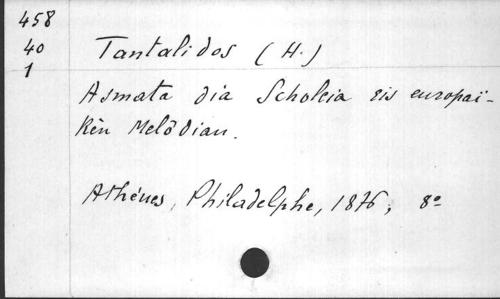 458
40
1
Tantalidos (H.)
Asmata dia Scholeia eis europaï-
kèn Melôdian.
Athénes, Philadelphe, 1876; 8º